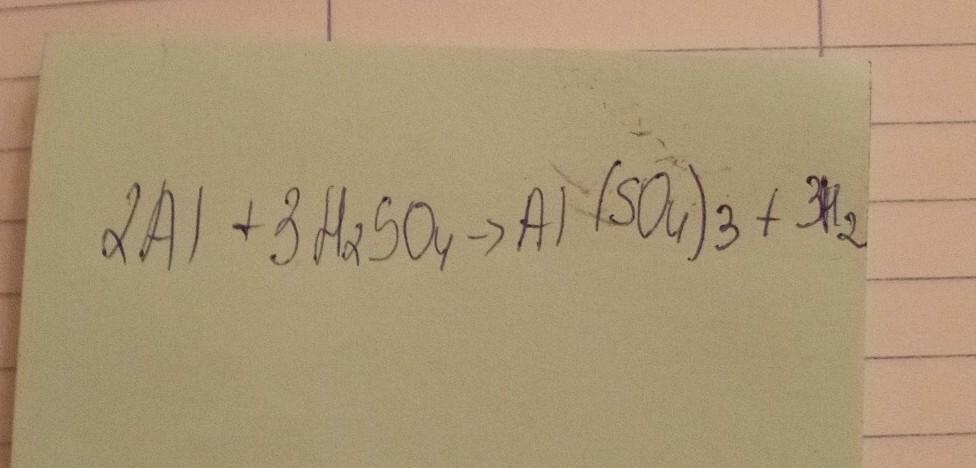 2Al + 3H₂SO₄ → Al(SO₄)₃ + 3H₂